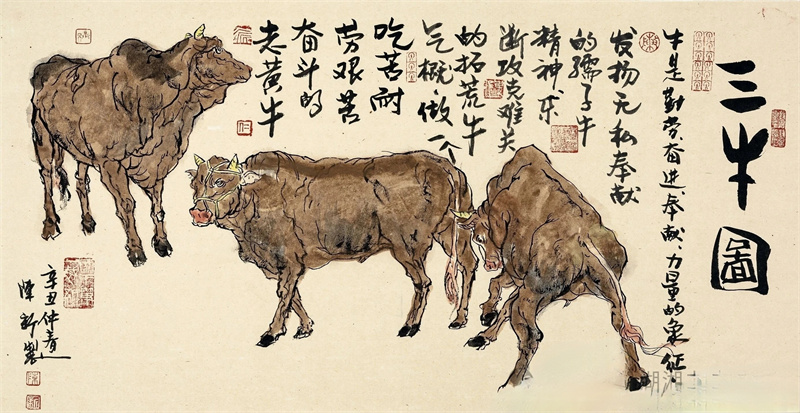 三牛圖
牛是勤劳、奋进、奉献、力量的象征,
发扬无私奉献
的孺子牛
精神
断攻克难关
的拓荒牛
气概、做一个
吃苦耐
劳艰苦
奋斗的
老黄牛
辛丑仲春
陈新製